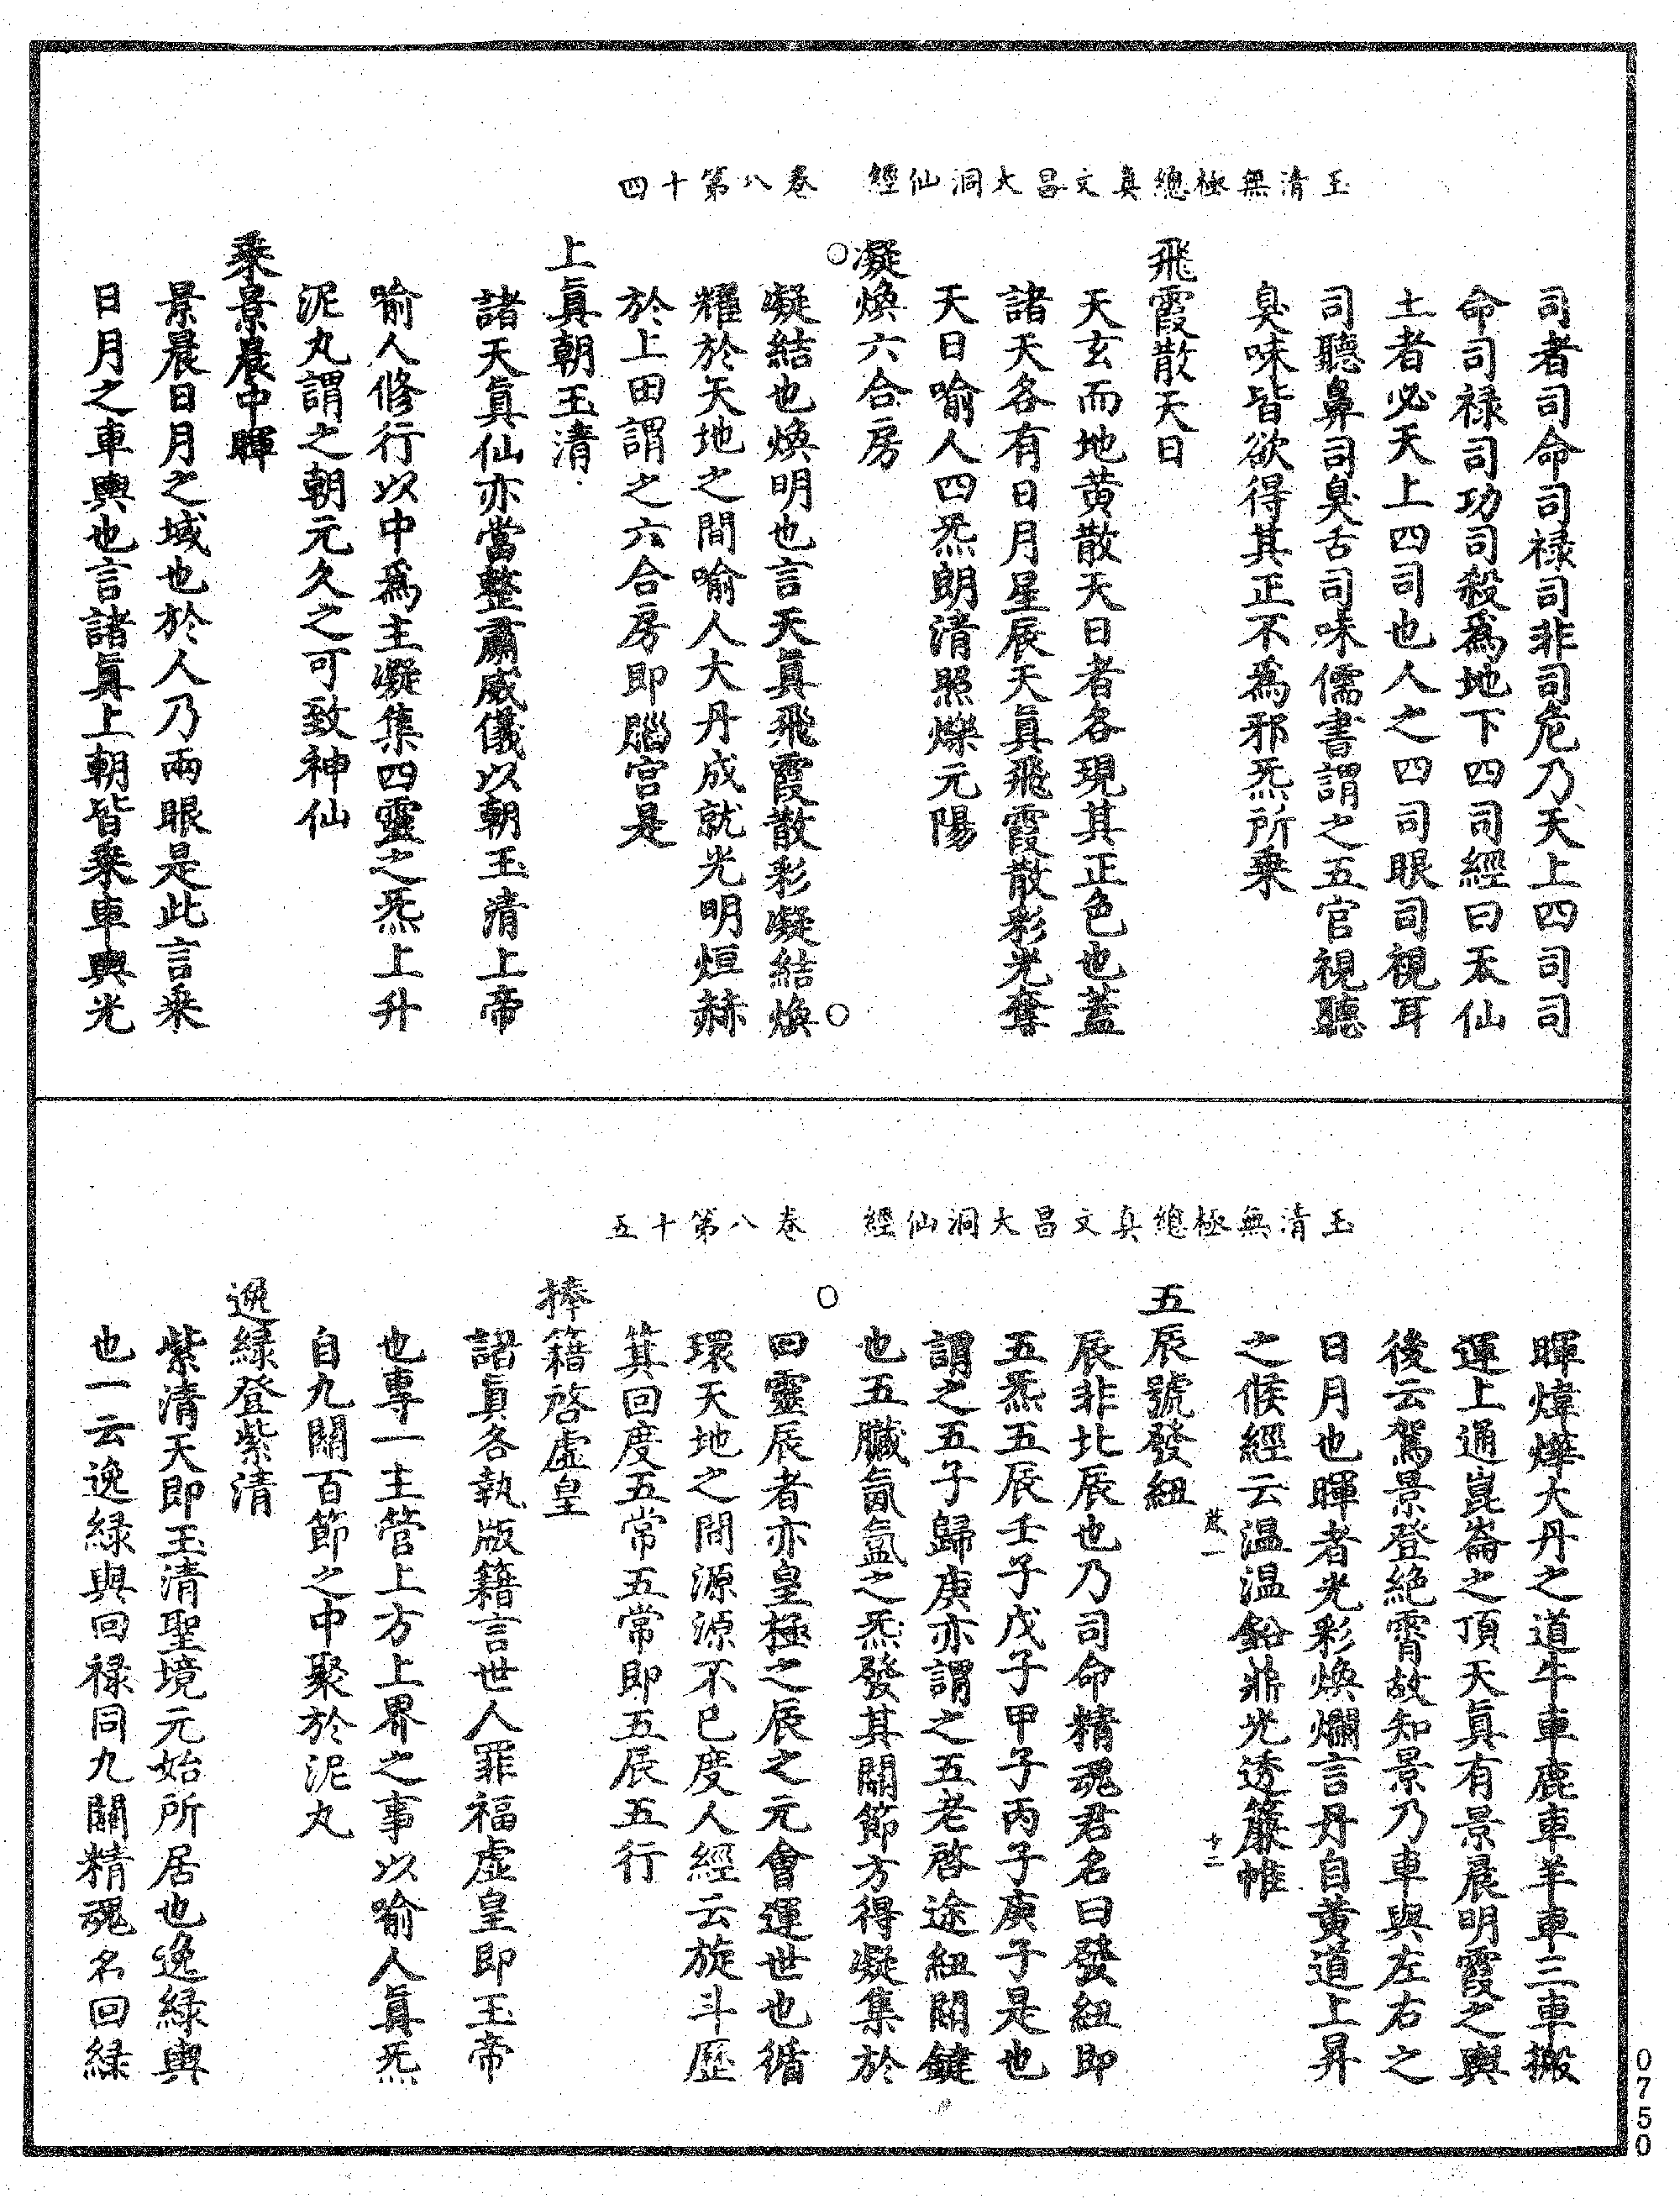 玉清無極總真文昌大洞仙經　卷八第十四
司者司命司禄司非司危乃天上四司司
命司禄司功司殺為地下四司經曰夭仙
土者必天上四司也人之四司眼司視耳
司聽鼻司臭舌司味儒書謂之五官視聽
臭味皆欲得其正不為邪炁所乗
飛霞散天日
天玄而地黄散天日者各現其正色也蓋
諸天各有日月星辰天眞飛霞散彩光奪
天日喻人四炁朗清照爍元陽
凝煥六合房
凝結也煥明也言天眞飛霞散彩凝結煥
耀於天地之間喻人大丹成就光明烜赫
於上田謂之六合房即腦宮是
上眞朝玉清
諸天眞仙亦當整肅威儀以朝玉清上帝
喻人修行以中為主凝集四靈之炁上升
泥丸謂之朝元久之可致神仙
乗景晨中暉
景晨日月之域也於人乃兩眼是此言乗
日月之車輿也言諸眞上朝皆乗車輿光
玉清無極總真文昌大洞仙經　卷八第十五
暉煒燁大丹之道牛車鹿車羊車三車搬
運上通崑崙之頂天眞有景晨明霞之輿
後云駕景登絶霄故知景乃車輿左右之
日月也暉者光彩煥爛言丹自黄道上昇
之候經云温温鉛鼎光透簾帷
五辰號發紐
辰非北辰也乃司命精魂君名曰發紐即
五炁五辰壬子戊子甲子丙子庚子是也
謂之五子歸庚亦謂之五老啓途紐關鍵
也五臟氤氲之炁發其關節方得凝集於
回靈辰者亦皇極之辰之元會運世也循
環天地之間源源不已度人經云旋斗歷
箕回度五常五常即五辰五行
捧籍啓虚皇
諸眞各執版籍言世人罪福虚皇即玉帝
也專一主管上方上界之事以喻人眞炁
自九關百節之中聚於泥丸
逸緑登紫清
紫清天即玉清聖境元始所居也逸緑輿
也一云逸緑與回禄同九關精魂名回緑
十二
0750